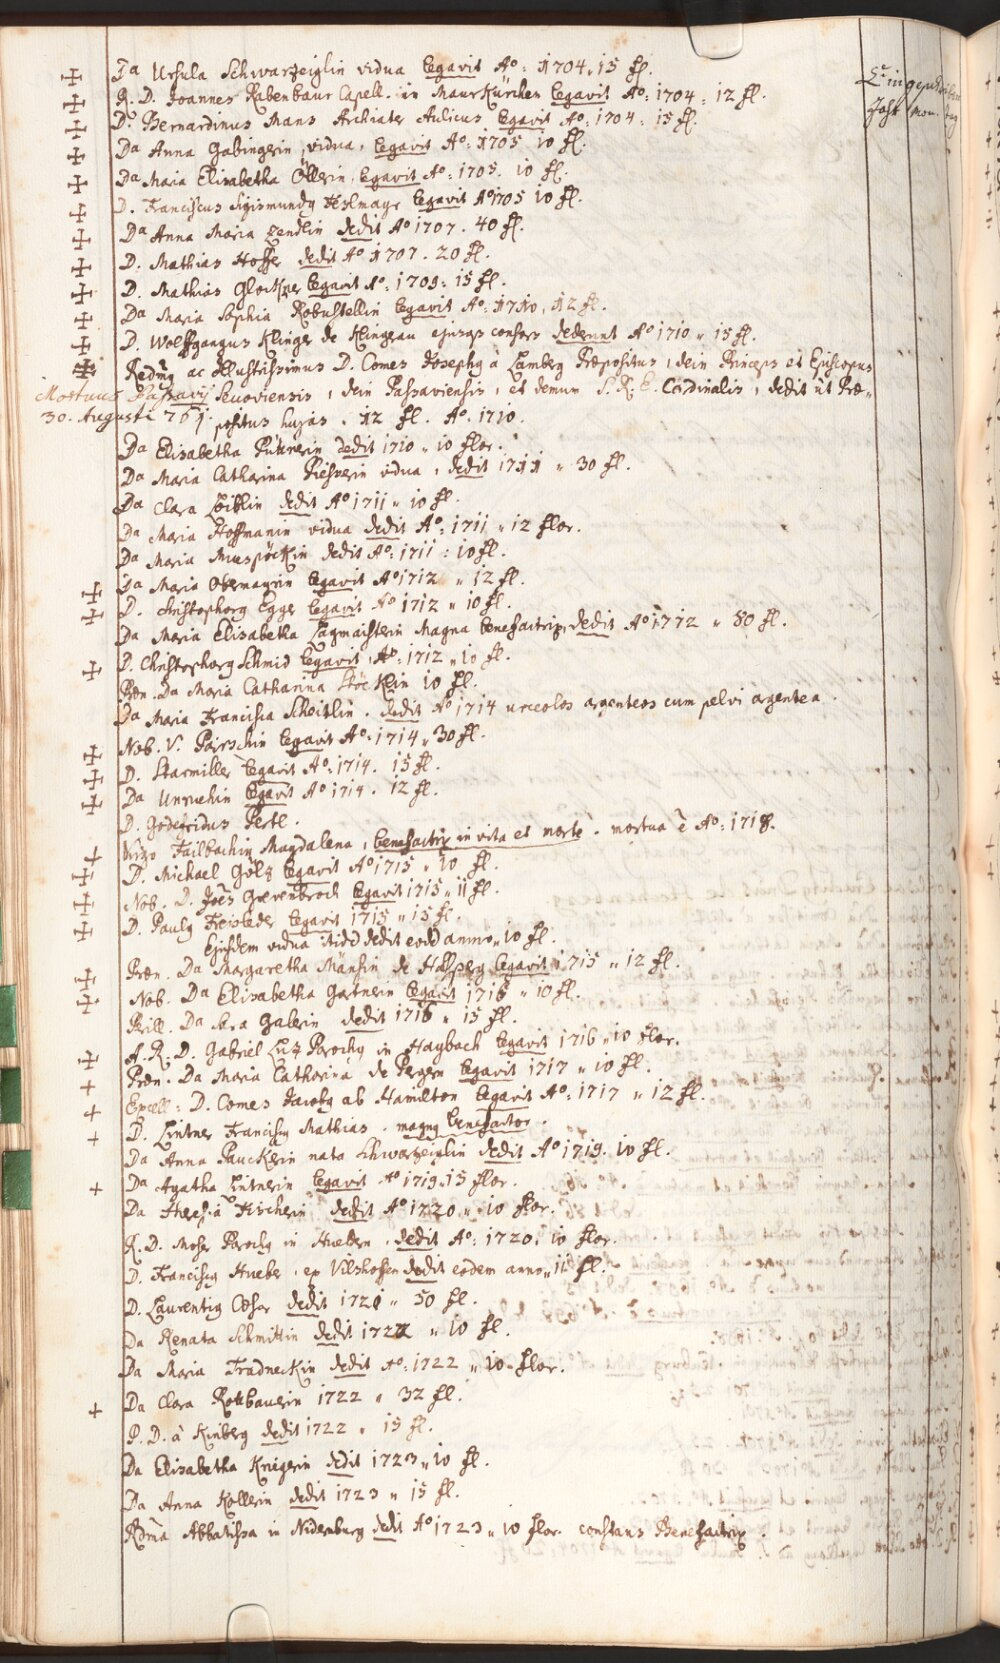 Da Ursula Schwarzeiglin vidua Legavit Ao: 1704. 15 fl.
R. D. Joannes Rabenbaur Capell. in Maurkürchen Legavit Ao: 1704: 12 fl.
D. Bernardinus Mans Archiater Aulicus Legavit Ao: 1704: 15 fl.
Da Anna Gabingerin vidua, Legavit Ao: 1705 10 fl.
Da Maria Elisabetha Öllerin Legavit Ao: 1705. 10 fl.
D. Franciscus Sigismundg Legavit Ao 1705 10 fl.
Da Anna Maria Zendlin dedit Ao 1707. 40 fl.
D. Mathias Hoffer dedit Ao 1707. 20 fl.
D. Mathias Glockner Legavit Ao: 1709: 15 fl.
Da Maria Sophia Robustellin Legavit Ao: 1710, 12 fl.
D. Wolffgangus Klinger de Klingerau ejusqs consors dederunt Ao 1710 " 15 fl.
Redmg ac Illustissimus D. Comes Josephg à Lamberg Præpositus, dein Princeps et Episcopus
Mortuus Passavij Seuoviensis, dein Passaviensis, et demum S. R. E. Cardinalis, dedit ut Præ-
30. Augusti 761. positus hujas. 12 fl. Ao. 1710.
Da Elisabetha dedit 1710 " 10 flor.
Da Maria Catharina vidua, dedit 1711 " 30 fl.
Da Clara Loiblin dedit Ao 1711 " 10 fl.
Da Maria Hoffmanin vidua dedit Ao: 1711 " 12 flor.
Da Maria Muespöckin dedit Ao: 1711: 10 fl.
Da Maria Obermayrin Legavit Ao 1712 " 12 fl.
D. Christophorg Egger Legavit Ao 1712 " 10 fl.
Da Maria Elisabetha Zagmaisterin Magna Benefactrix, dedit Ao 1712 " 80 fl.
D. Christophorg Schmid Legavit, Ao: 1712 " 10 fl.
Præn. Da Maria Catharina Stöcklin 10 fl.
Da Maria Francisca Schoitlin. dedit Ao 1714 urceolos argenteos cum pelvi argentea
Nob. V. Pairschin Legavit Ao: 1714 " 30 fl.
D. Starmiller Legavit Ao: 1714. 15 fl.
Da Unruehin Legavit Ao 1714. 12 fl.
D. Godefridus Pertl.
Virgo Failbachin Magdalena, benefactrix in vita et morte. mortua e Ao: 1718.
D. Michael Gölz Legavit Ao 1715 " 10 fl.
Nob. D. Joēs Grevenbroch Legavit 1715 " 11 fl.
D. Paulg Freisleder Legavit 1715 " 15 fl.
Ejusdem vidua dedit eodē anno " 10 fl.
Præn. Da Margaretha Mänsin de Legavit 1715 " 12 fl.
Nob. Da Elisabetha Gartnerin Legavit 1716 " 10 fl.
Perill. Da Sara Gablerin dedit 1716 " 15 fl.
A. R. D. Gabriel Luz Parochg in Haybach Legavit 1716 " 10 flor.
Præn. Da Maria Catharina de Pergern Legavit 1717 " 10 fl.
Excell: D. Comes Jacobg ab Hamilton Legavit Ao: 1717 " 12 fl.
D. Lintner Franciscg Mathias. magng benefactor.
Da Anna Pauckerin nata Schwarzeiglin dedit Ao 1719. 10 fl.
Da Agatha Lintnerin Legavit Ao 1719. 15 flor.
Da Theresia Fischerin dedit Ao 1720 " 10 flor.
R. D. Moser Parochg in dedit Ao: 1720. 10 flor.
D. Franciscg Hueber. ex Vilshofen dedit eodem anno " 11 fl.
D. Laurentig Cæsar dedit 1721 " 50 fl.
Da Renata Schmittin dedit 1722 " 10 fl.
Da Maria Fradneckin dedit Ao: 1722 " 10 flor.
Da Clara Rottbauerin 1722 " 32 fl.
P. D. à Kinberg dedit 1722 " 15 fl.
Da Elisabetha Kriegerin dedit 1723 " 10 fl.
Da Anna Kollerin dedit 1723 " 15 fl.
Rdma Abbatissa in Nidernburg dedit Ao 1723 " 10 flor. constans Benefactrix.
Jahr Mon. tag